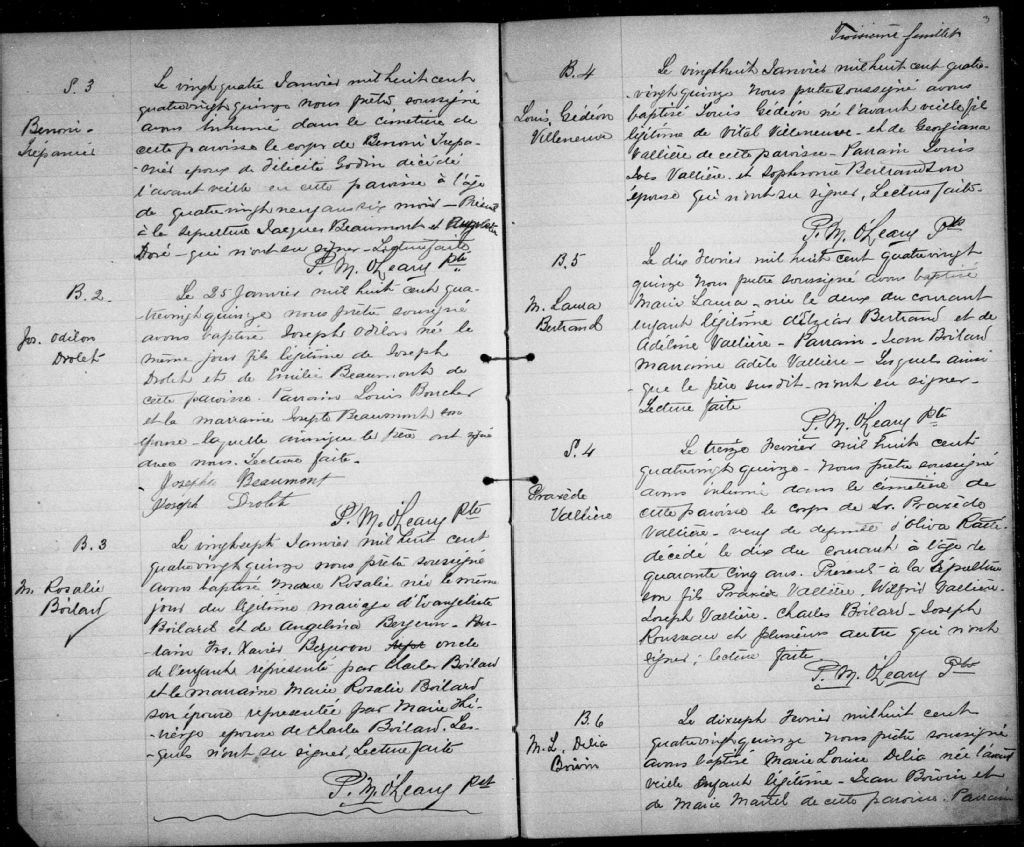 S. 3
Benoni
Trépanier
Le vingt quatre Janvier mil huit cent
quatrevingt quinze nous prêtre soussigné
avons inhumé dans le cimetière de
cette paroisse le corps de Benoni Trépa-
nier époux de Félicité Godin décédé
l'avant veille en cette paroisse à l'âge
de quatrevingt neuf ans six mois - Présent
à la sépulture Jacques Beaumont et
Doré - qui n'ont su signer - Lecture faite
P. M. O'Leary Ptre
B. 2.
Jos. Odilon
Drolet
Le 25 Janvier mil huit cent qua-
trevingt quinze nous prêtre soussigné
avons baptisé Joseph Odilon né le
même jour fils légitime de Joseph
Drolet et de Emilie Beaumont de
cette paroisse. Parrain Louis Boucher
et la marraine Josephe Beaumont son
épouse - laquelle ainsique le père ont signé
avec nous. Lecture faite.
Josephe Beaumont
Joseph Drolet
P. M. O'Leary Ptre
B. 3
M. Rosalie
Boilard
Le vingt sept Janvier mil huit cent
quatrevingt quinze nous prêtre soussigné
avons baptisé Marie Rosalie née le même
jour du légitime mariage d'Evangeliste
Boilard et de Angelina Bergeron - Par-
rain Frs. Xavier Bergeron oncle
de l'enfant représenté par Charles Boilard
et la marraine Marie Rosalie Boilard
son épouse representée par Marie
épouse de Charles Boilard. Les-
quels n'ont su signer, Lecture faite
P. M. O'Leary Ptre
3
Troisième feuillet
B. 4
Louis Gédéon
Villeneuve
Le vingt huit Janvier mil huit cent quatre-
-vingt quinze nous prêtre soussigné avons
baptisé Louis Gédéon né l'avant veille fil
légitime de Vital Villeneuve - et de Georgiana
Vallière de cette paroisse - Parrain Louis
Vallière et Sophronie Bertrand son
épouse qui n'ont su signer, Lecture faite -
P. M. O'Leary Ptre
B. 5
M. Laura
Bertrand
Le dix Fevrier mil huit cent quatrevingt
quinze nous prêtre soussigné avons baptisé
Marie Laura - née le deux du courant
enfant légitime d'Elzéar Bertrand et de
Adeline Vallière - Parrain - Jean Boilard
Marraine Adèle Vallière - Lesquels ainsi
-que le père susdit - n'ont su signer -
Lecture faite
P. M. O'Leary Ptre
S. 4
Praxède
Vallière
Le treize Fevrier mil huit cent
quatrevingt quinze - nous prêtre soussigné
avons inhumé dans le cimetière de
cette paroisse le corps de Sr. Praxède
Vallière - veuf de d'Oliva
décédé le dix du courant à l'âge de
quarante cinq ans. Présent à la sépulture
son fils Vallière. Wilfrid Vallière.
Joseph Vallière. Charles Boilard - Joseph
Rousseau et plusieurs autre qui n'ont
signer; lecture faite
P. M. O'Leary Ptre
B. 6
M. L. Delia
Boivin
Le dixsept Fevrier mil huit cent
quatrevingt quinze nous prêtre soussigné
avons baptisé Marie Louise Delia née l'avant
veille enfant légitime - Jean Boivin et
de Marie Martel de cette paroisse. Parrain